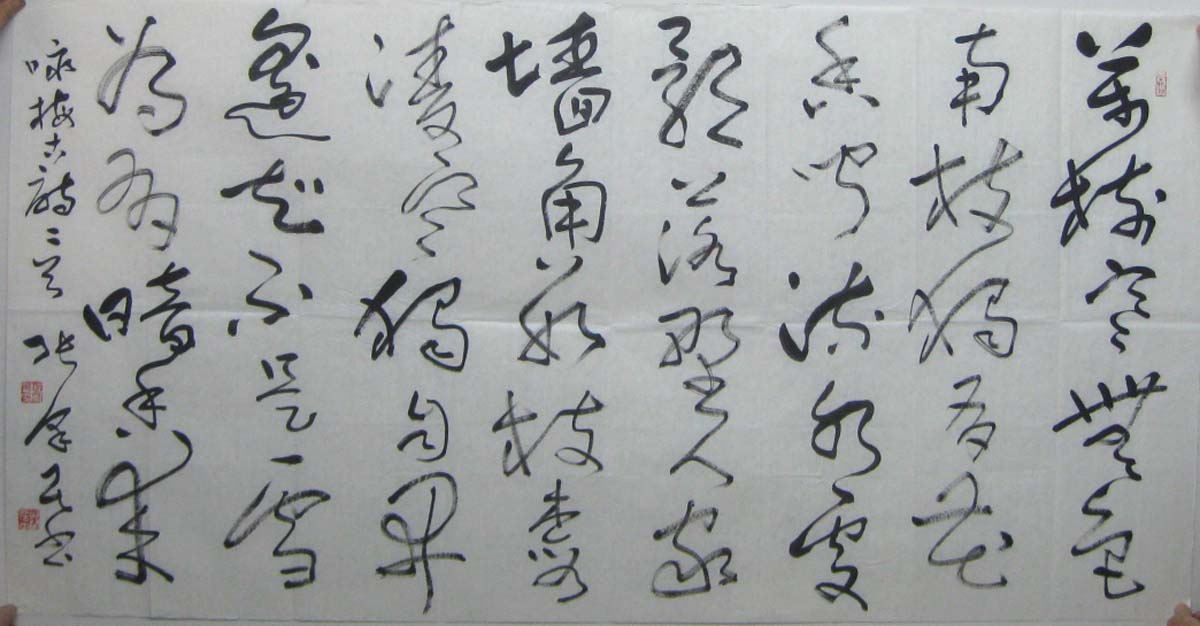 萬樹寒無色
南枝獨有花
香聞流水處
影落野人家
墙角數枝梅
凌寒獨自開
遙知不是雪
為有暗香來
咏梅古詩二首 张书